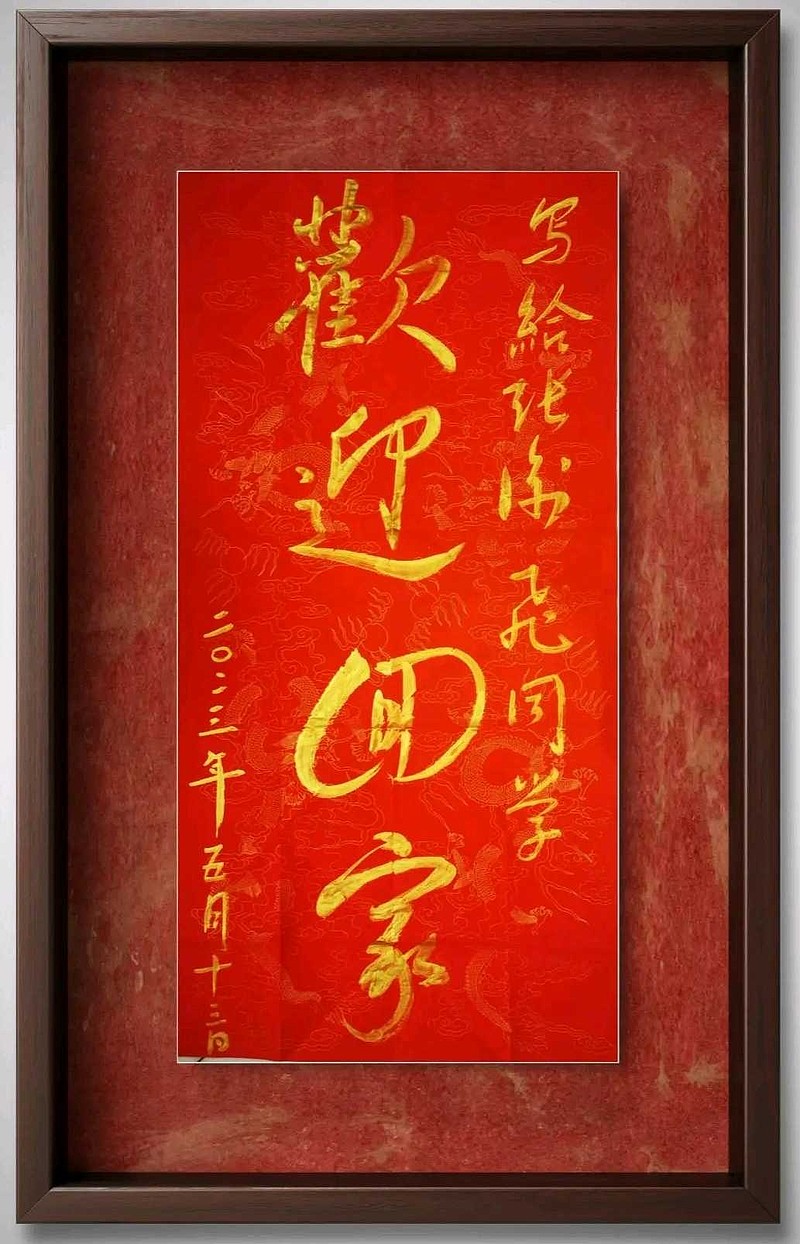 写给张飞同学
歡迎回家
二〇二三年五月十三日